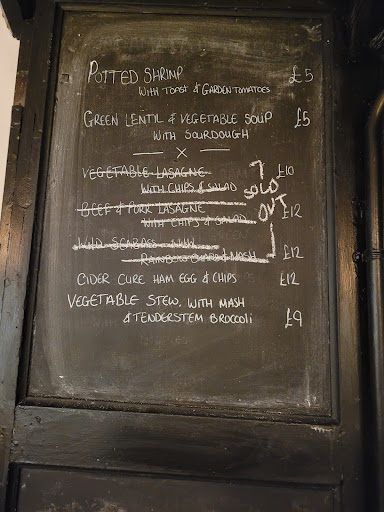 POTTED SHRIMP £5
WITH TOAST & GARDEN TOMATOES
GREEN LENTIL & VEGETABLE SOUP £5
WITH SOURDOUGH
— X —
VEGETABLE LASAGNE £10
WITH CHIPS & SALAD SOLD
BEEF & PORK LASAGNE OUT £12
WITH CHIPS & SALAD
WILD SEABASS
RAINBOW & MASH £12
CIDER CURE HAM EGG & CHIPS £12
VEGETABLE STEW. WITH MASH
& TENDERSTEM BROCCOLI £9